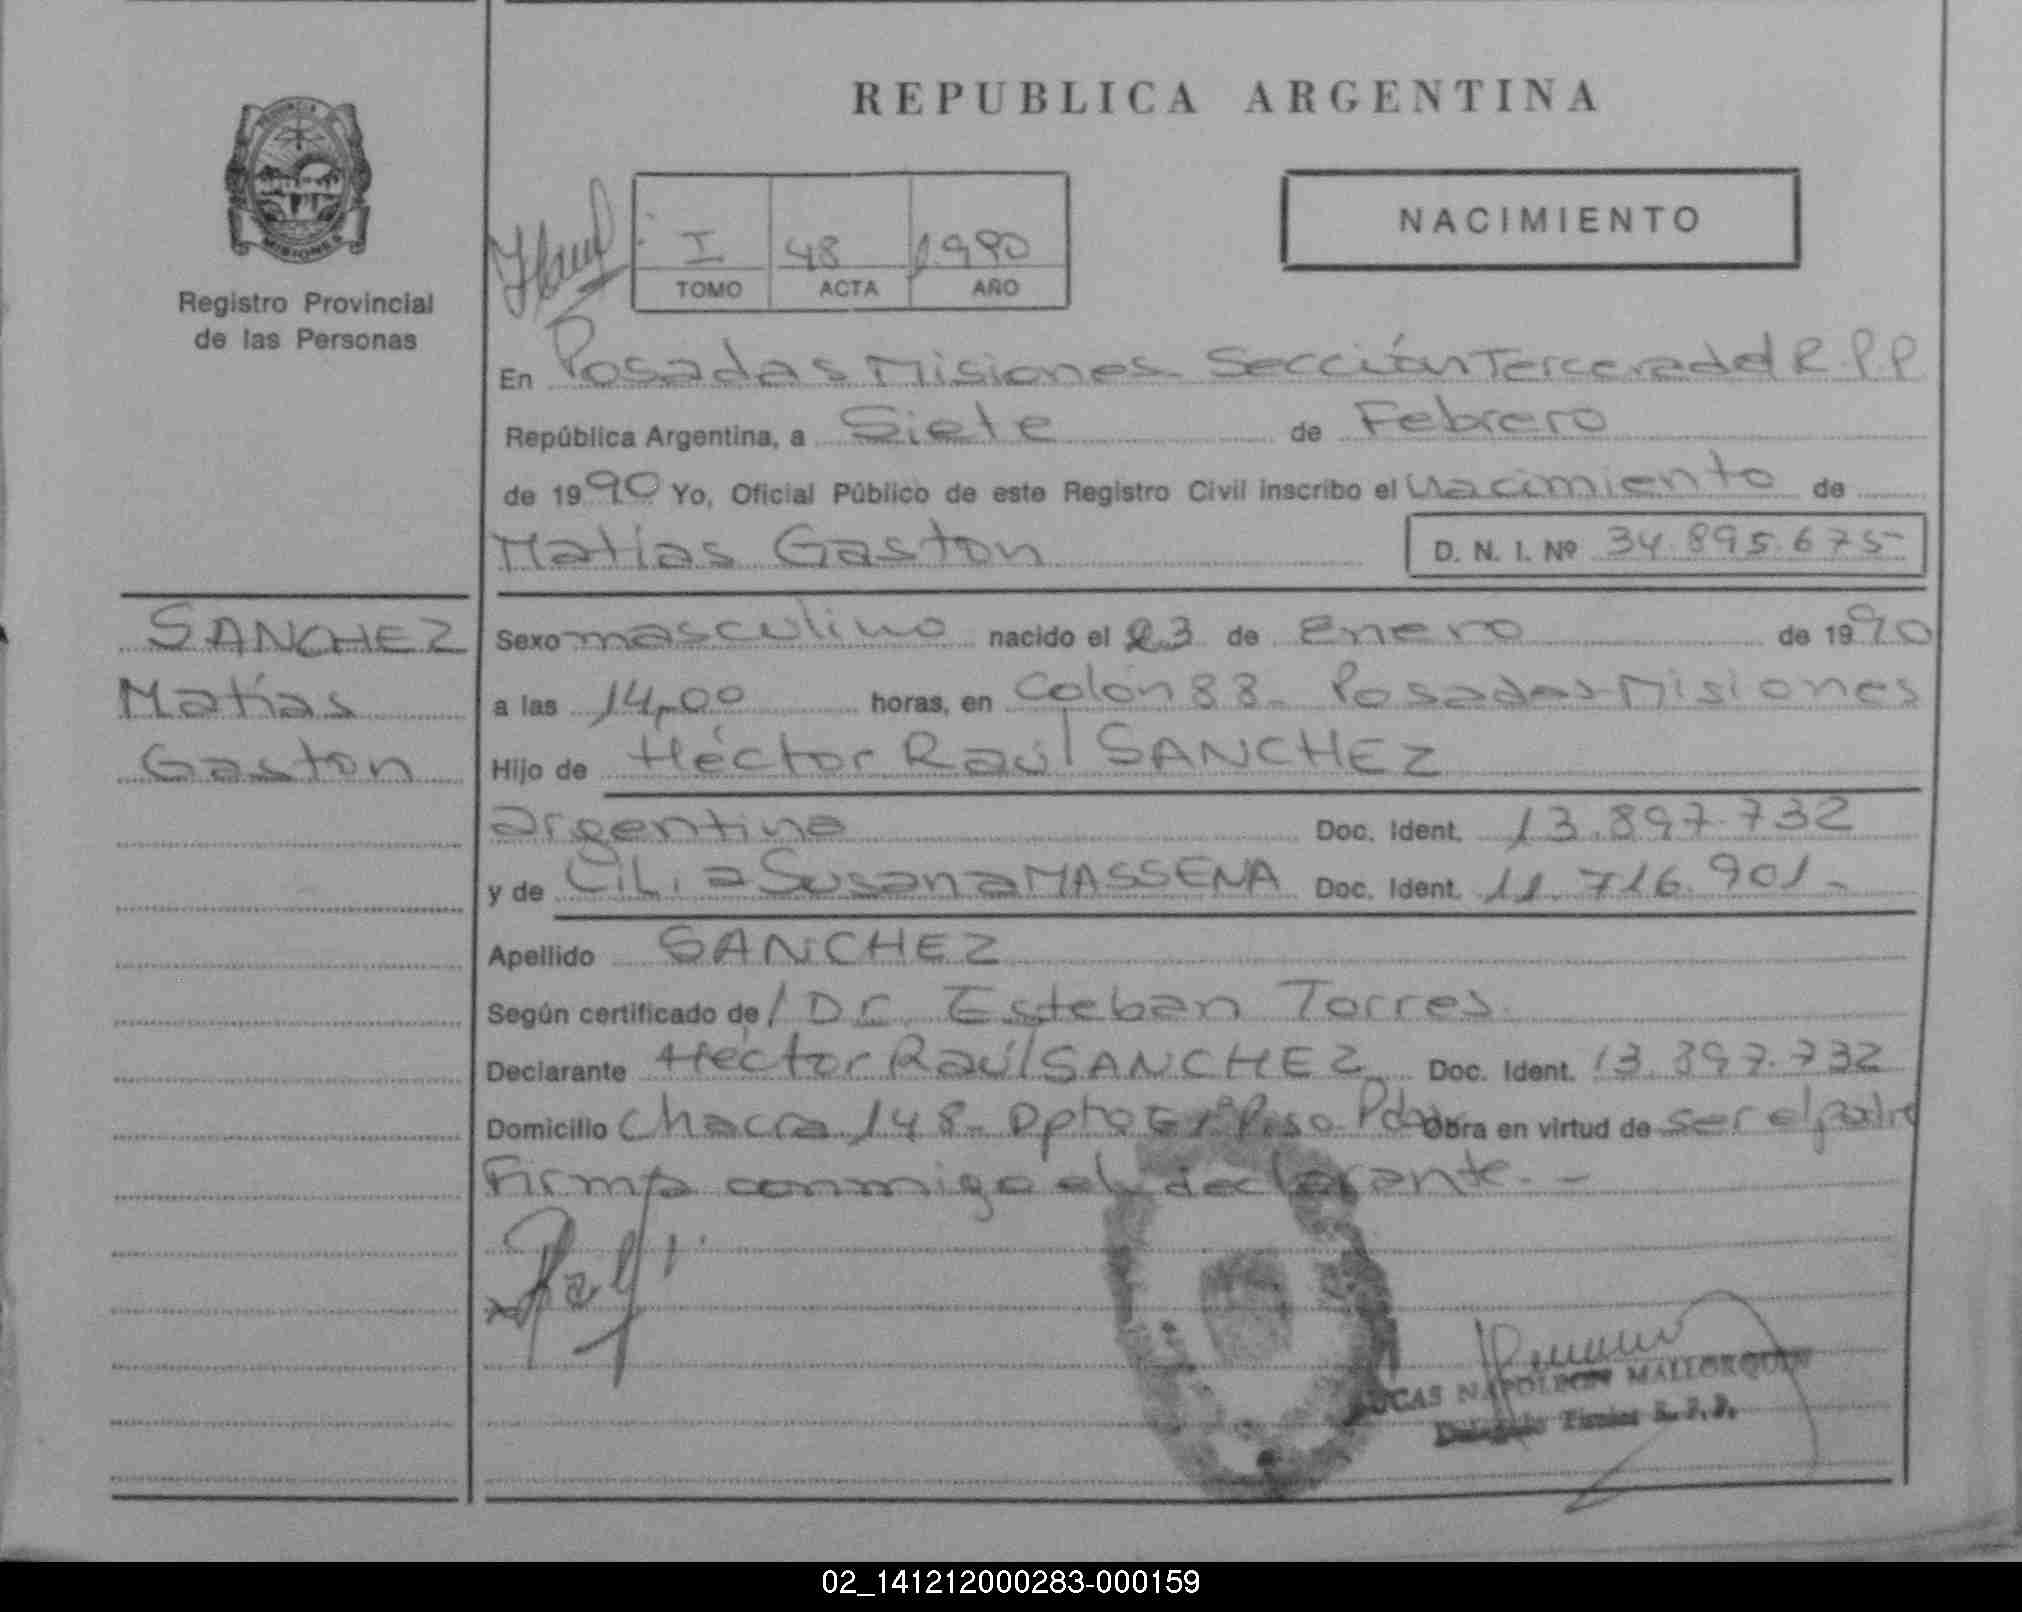 REPUBLICA ARGENTINA
PROVINCIA
MISIONES
Registro Provincial
de las Personas
I 48 1990
TOMO ACTA AÑO
NACIMIENTO
En Posadas Misiones - Sección Tercera del R.P.P
República Argentina, a Siete de Febrero
de 1990 Yo, Oficial Público de este Registro Civil inscribo el nacimiento de
Matías Gaston D. N. I. Nº 34.895.675-
SANCHEZ
Matías
Gaston
Sexo masculino nacido el 23 de enero de 1990
a las 14,00 horas, en Colón 88 - Posadas-Misiones
Hijo de Héctor Raúl SANCHEZ
argentino Doc. Ident. 13.897.732
y de Susana MASSENA Doc. Ident. 11.716.901-
Apellido SANCHEZ
Según certificado de/ Dr. Esteban Torres.
Declarante Héctor Raúl SANCHEZ Doc. Ident. 13.897.732
Domicilio Chacra 148 - Dpto Piso Obra en virtud de ser el padre
Firma conmigo el declarante. -
LUCAS NAPOLEON MALLORQUIN
R. P. P.
02_141212000283-000159